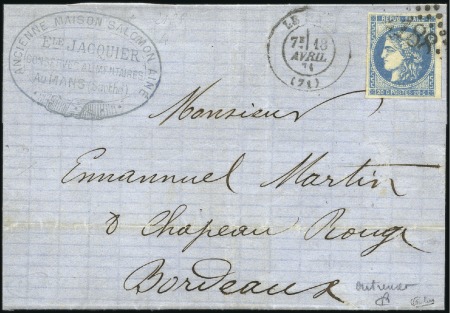 ANCIENNE MAISON SALOMON AINÉ
Fix JACQUIER
CONSERVES ALIMENTAIRES
AU MANS (Sarthe)
LE
7E 18
AVRIL
71
(71)
Monsieur
Emmannuel Martin
d Chapeau Rouge
Bordeaux